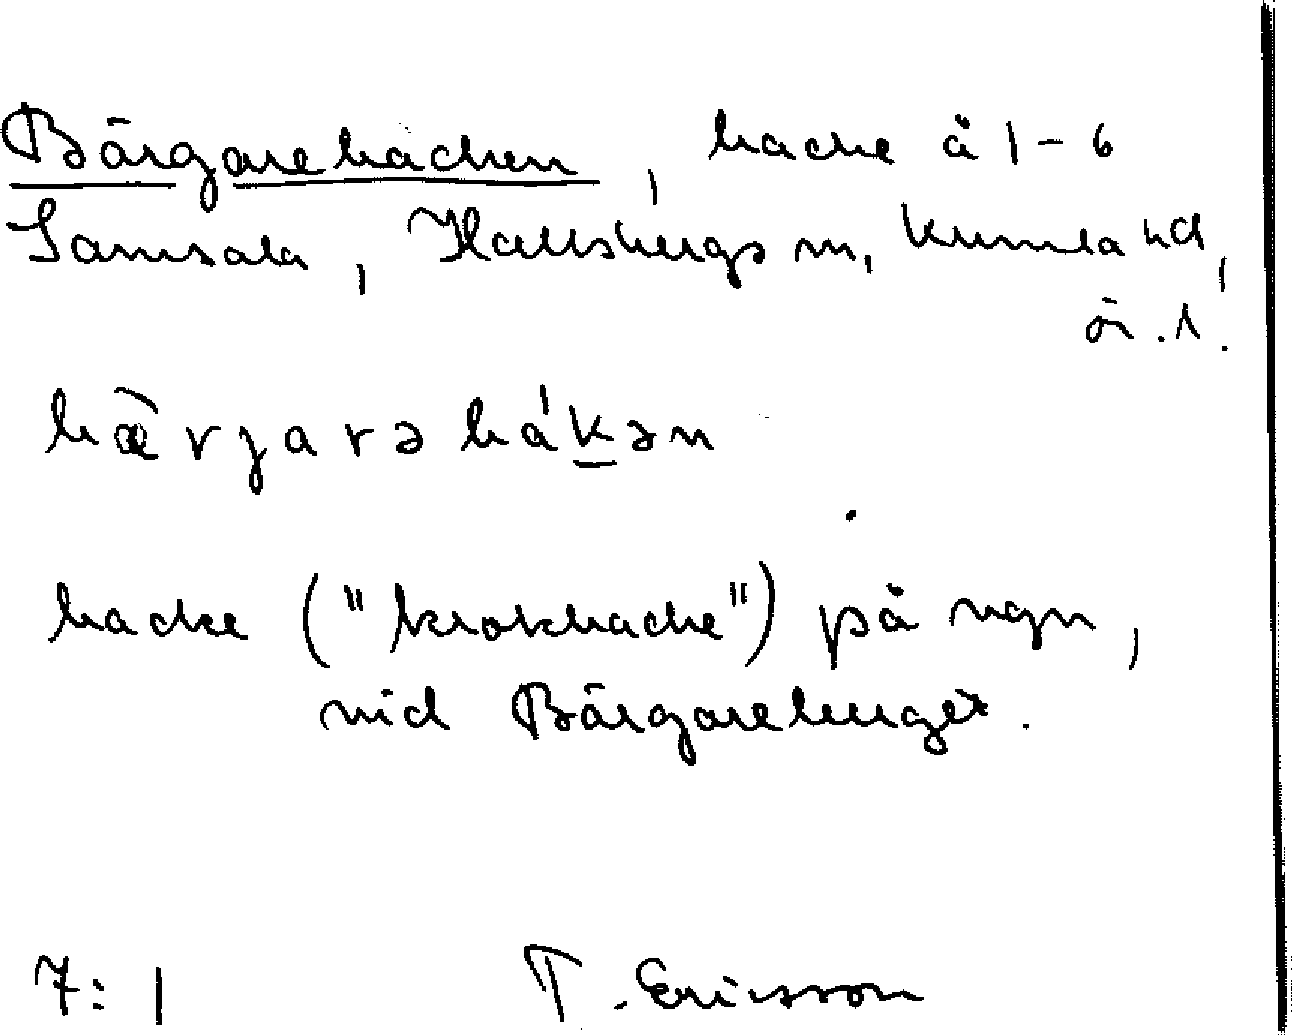 Bärgarebacken, backe å 1-6
Samsala, Hallsbergs sn, Kumla hd,
ör. l.
bæ̀rjarə bákən
backe ("krokbacke") på vägen,
vid Bärgareberget.
7:1 T. Ericsson